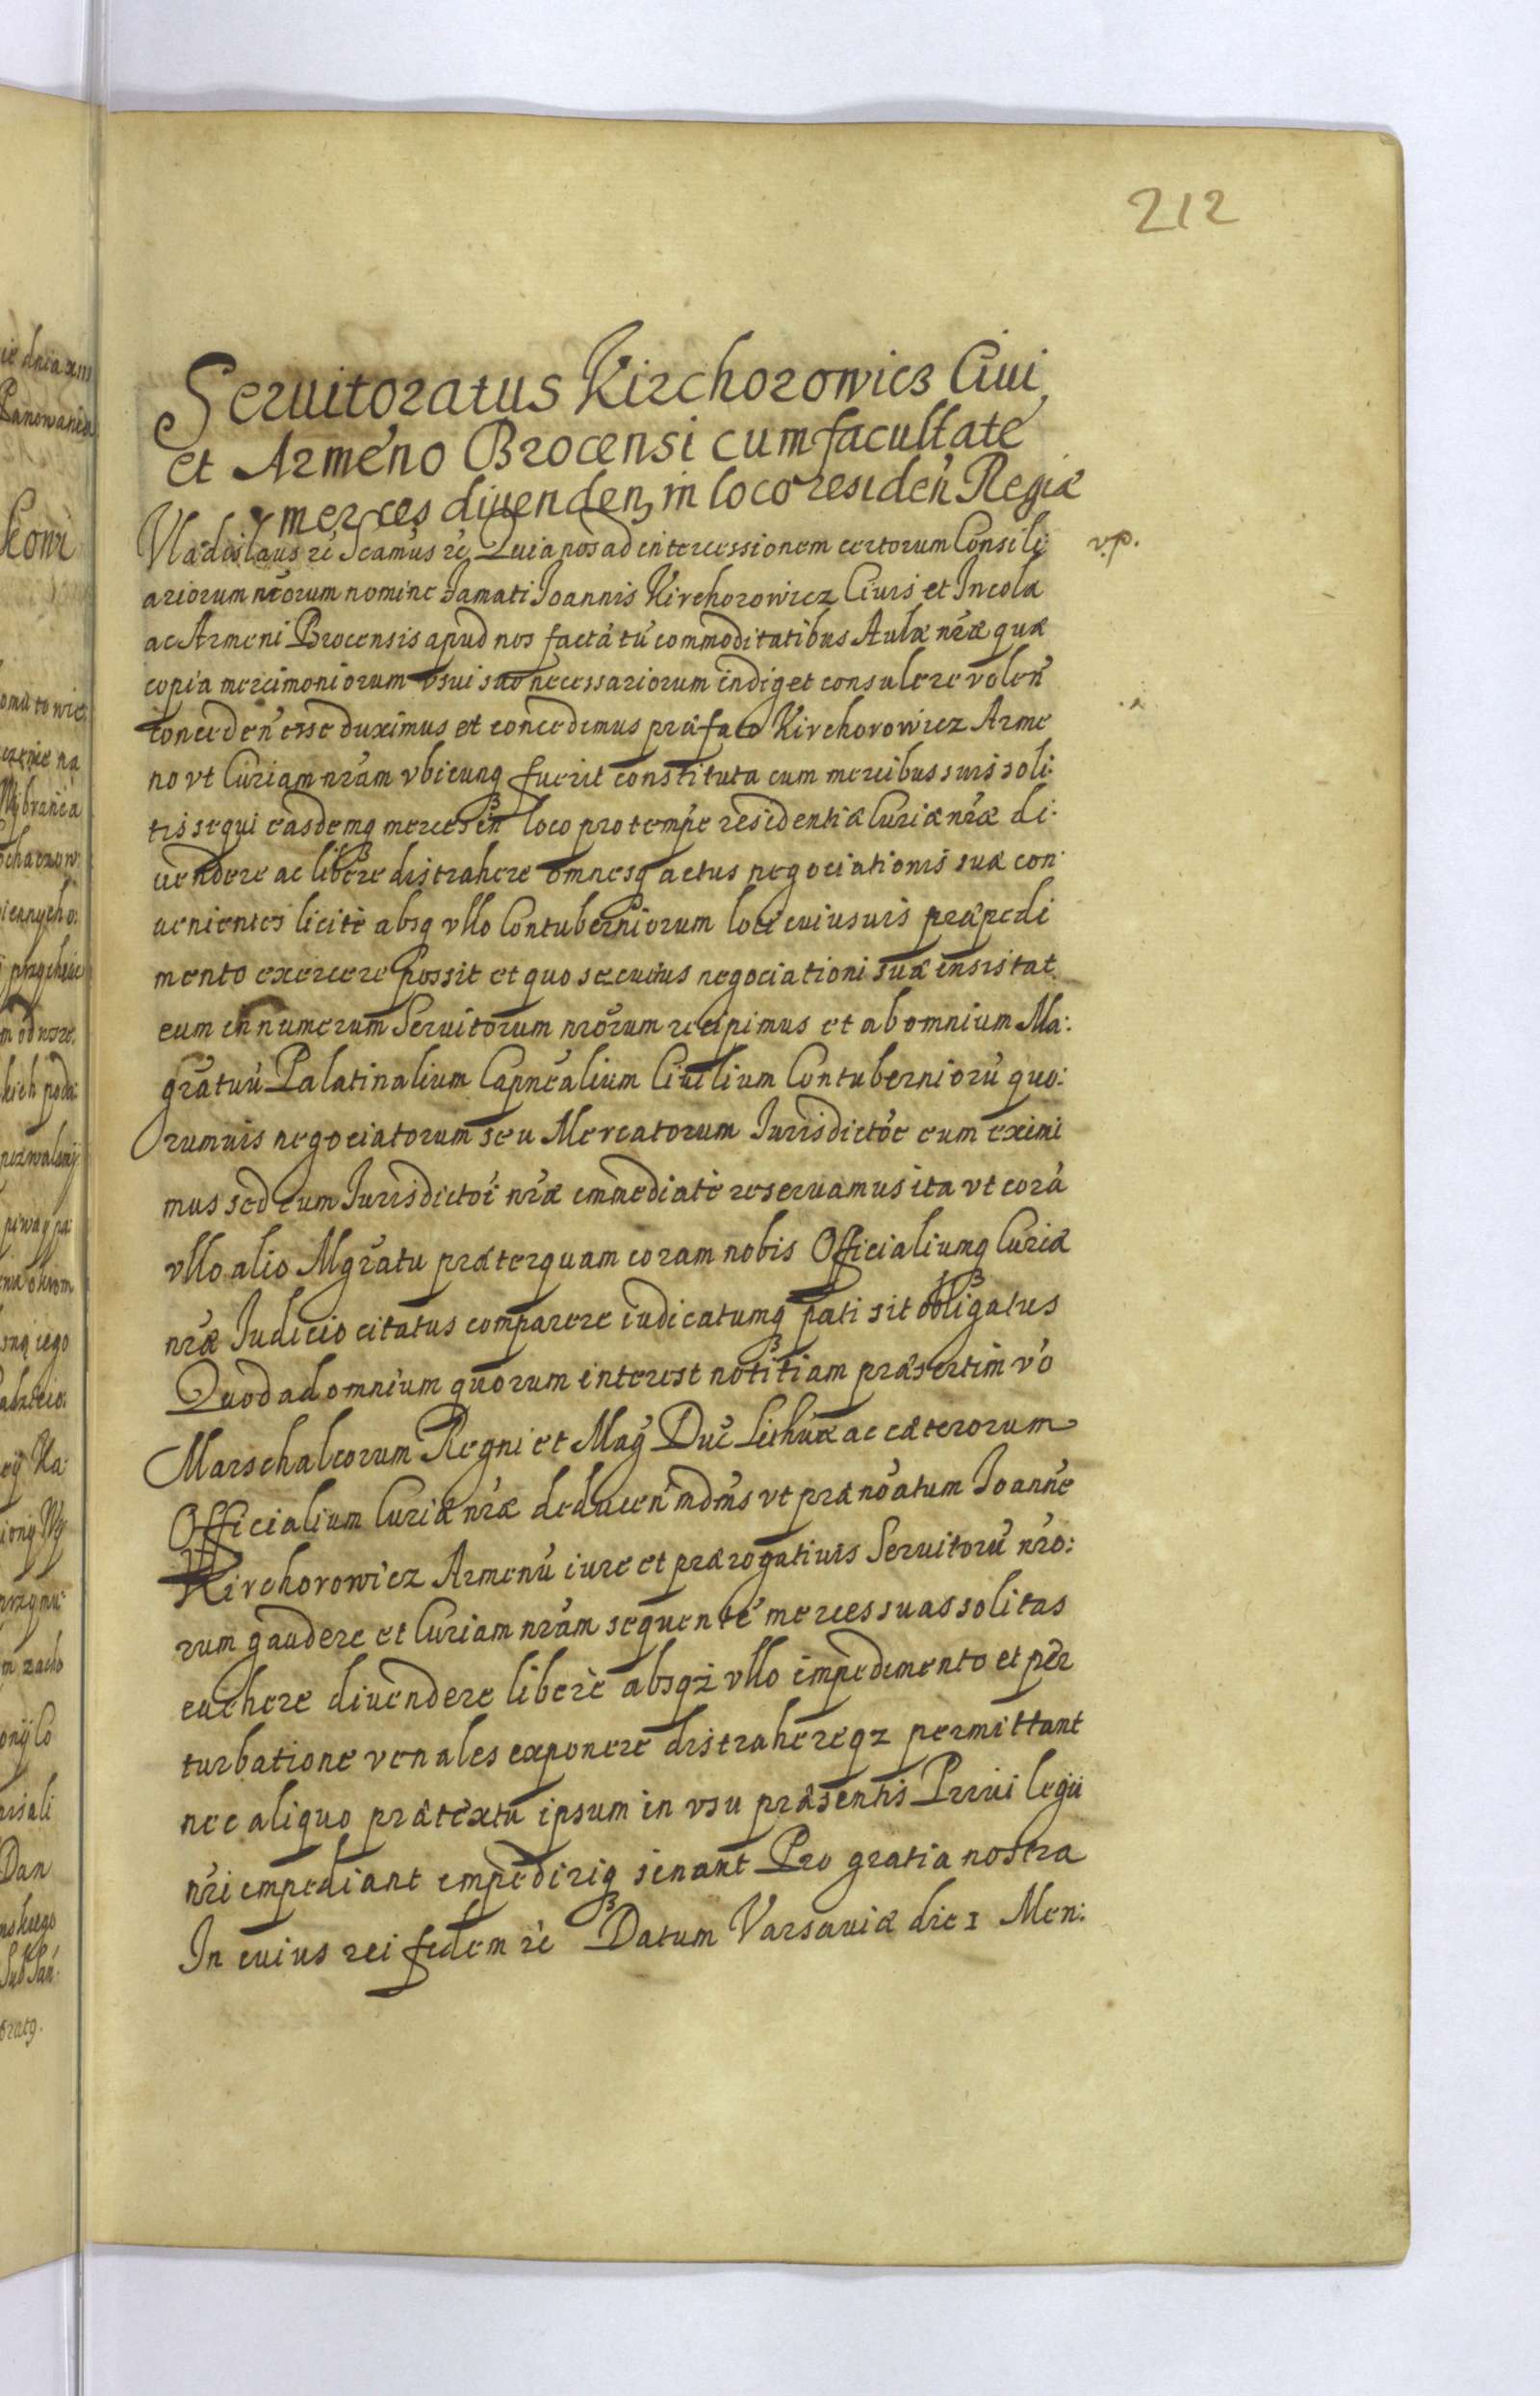 212
Seruitoratus Kirchorowicz Ciui,
et Armeno Brocensi cum facultate
merces diuenden, in loco residen̄ Regiæ
Vladislaus rc̄ Scamus rc̄ Quia nos ad intercessionem certorum Consili: v.p.
ariorum nr̄orum nomine Famati Ioannis Kirchorowicz Ciuis et Incolæ
ac Armeni Brocensis apud nos factā tū commoditatibus Aulæ nr̄æ quæ
copia mercimoniorum vsui suo necessariorum indiget consulere volen̄
conceden̄ esse duximus et concedimus præfato Kirchorowicz Arme
no vt Curiam nr̄am vbicunq fuerit constituta cum mercibus suis soli:
tis sequi easdemq merces in loco pro tempe residentiæ Curiæ nr̄æ di:
uendere ac libere distrahere omnesq actus negociationis suæ con:
uenientes licite absq vllo Contuberniorum loci cuiusuis præpedi
mento exercere possit et quo securius negociationi suæ insistat
eum in numerum Seruitorum nr̄orum recipimus et ab omnium Ma:
gr̄atuū Palatinalium Capnēalium Ciuilium Contuberniorū quo:
rumuis negociatorum seu Mercatorum Iurisdictōe eum eximi
mus sed eum Iurisdictōi nr̄æ immediatè reseruamus ita vt corā
vllo alio Mgr̄atu præterquam coram nobis Officialiumq Curiæ
nr̄æ Iudicio citatus comparere iudicatumq pati sit obligatus
Quod ad omnium quorum interest notitiam præsertim vō
Marschalcorum Regni et Mag̃ Duc̄ Lithūæ ac cæterorum
Officialium Curiæ nr̄æ deducen̄ mdm̄s vt prænōatum Ioannē
Kirchorowicz Armenū iure et prærogatiuis Seruitorū nr̄o:
rum gaudere et Curiam nr̄am sequentē merces suas solitas
euehere diuendere liberè absqz vllo impedimento et per
turbatione venales exponere distrahereqz permittant
nec aliquo prætextu ipsum in vsu præsentis Priuilegii
nr̄i impediant impediriq sinant Pro gratia nostra
In cuius rei fidem rc̄ Datum Varsauiæ die 1 Men: